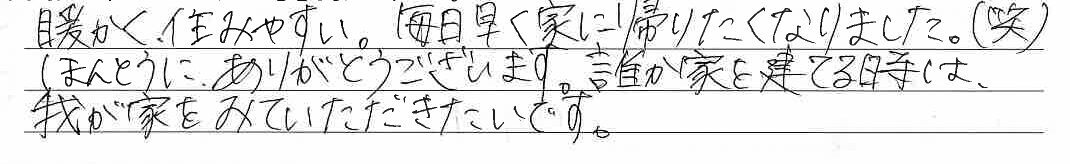 暖かく、住みやすい。毎日早く家に帰りたくなりました。(笑)
ほんとうに、ありがとうございます。誰か家を建てる時は、
我が家をみていただきたいです。